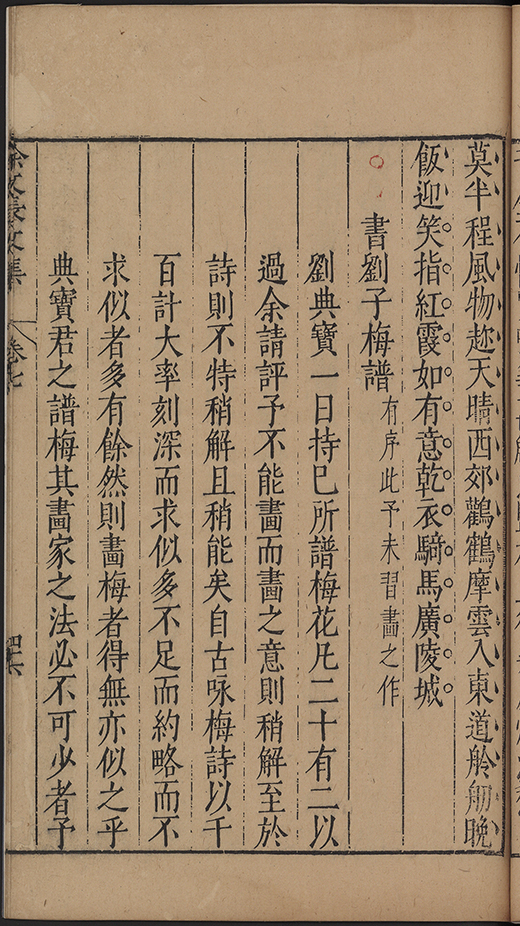 莫半程風物趂天晴西郊鸛鶴摩雲入東道舲舠晚
飯迎笑指紅霞如有意乾衣騎馬廣陵城
書劉子梅譜有序此予未習畫之作
劉典寶一日持巳所譜梅花凡二十有二以
過余請評予不能畫而畫之意則稍解至於
詩則不特稍解且稍能矣自古咏梅詩以千
百計大率刻深而求似多不足而約略而不
求似者多有餘然則畫梅者得無亦似之乎
典寶君之譜梅其畫家之法必不可少者予
徐文長文集
卷七
四六